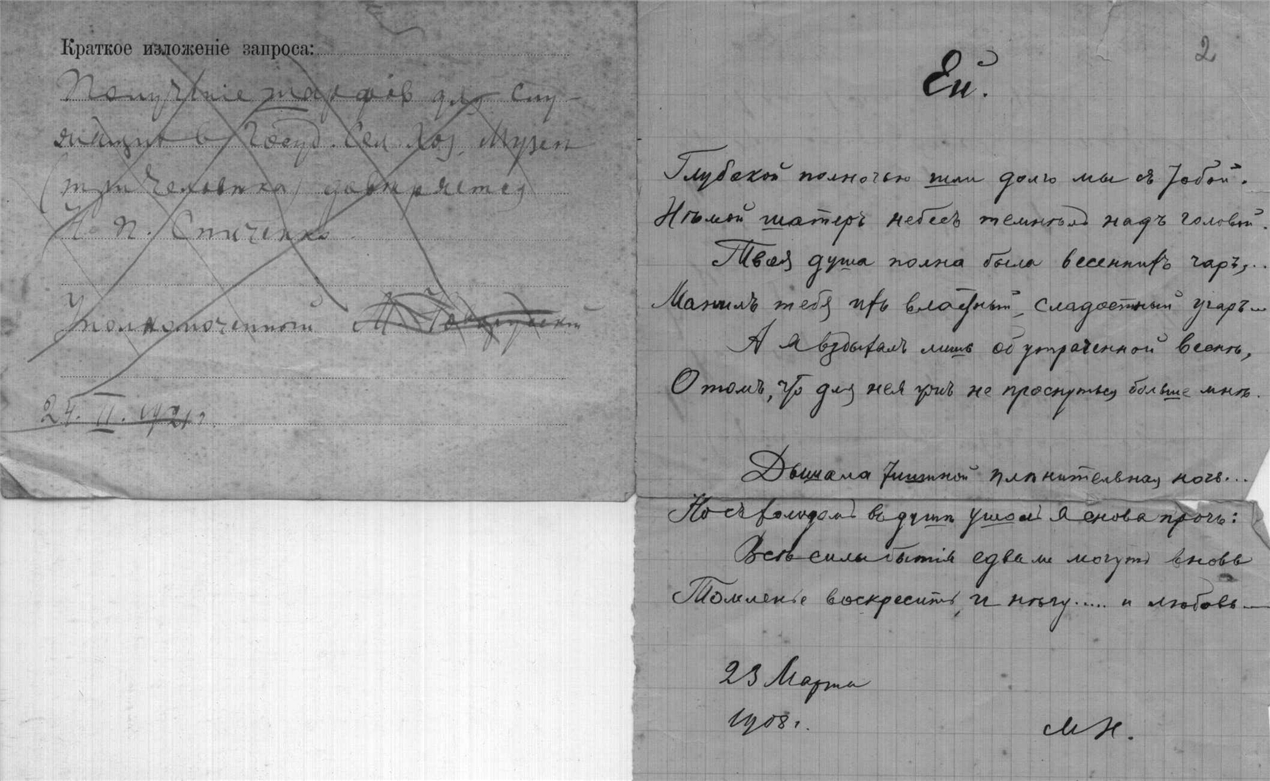 Краткое изложеніе запроса:
Получение тарифов для слу-
жащих в Госуд. Сел. Хоз. Музеи
(три человека) доверяется
П. Спиченко.
Уполномоченный
24. II. 1921 г.
2
Ей.
Глубокой полночью шли долго мы съ тобой.
Нѣмой шатеръ небесъ темнѣлъ надъ головой.
Твоя душа полна была весеннихъ чаръ,..
Манилъ тебя ихъ властный, сладостный угаръ...
А я вздыхалъ лишь объ утраченной веснѣ,
О томъ, что для нея ужъ не проснуться больше мнѣ.
Дышала тишиной плѣнительная ночь...
Но съ холодомъ въ душѣ ушолъ я снова прочь:
Всѣ силы бытія едва ли могутъ вновь
Томленье воскресить, и нѣгу..... и любовь...
23 Марта
1908 г.
М Н.